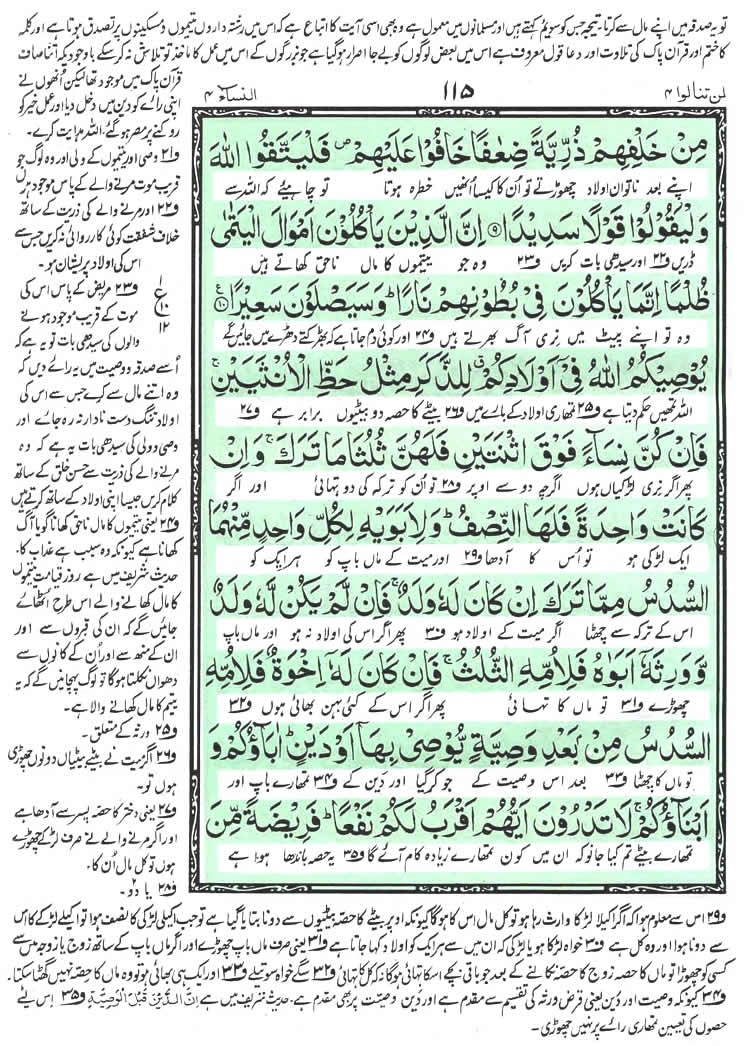 تو یہ صدقہ میں اپنے مال سے کرتا، تیجہ جس کو سویم کہتے ہیں اور مسلمانوں میں معمول ہے وہ بھی اسی آیت کا اتباع ہے کہ اس میں رشتہ داروں یتیموں و مسکینوں پر تصدق ہوتا ہے اور کلمہ
کا ختم اور قرآن پاک کی تلاوت اور دعا قول معروف ہے اس میں بعض لوگوں کو بے جا اصرار ہو گیا ہے جو بزرگوں کے اس عمل کا ماخذ تو تلاش نہ کر سکے باوجودیکہ اتنا صاف
لن تنالوا ۴
۱۱۵
النساء ۴
مِنْ خَلْفِهِمْ ذُرِّيَّةً ضِعٰفًا خَافُوْا عَلَيْهِمْ ۪ فَلْيَتَّقُوا اللّٰهَ
اپنے بعد ناتواں اولاد چھوڑتے تو ان کا کیسا انھیں خطرہ ہوتا تو چاہیئے کہ اللہ سے
وَلْيَقُوْلُوْا قَوْلًا سَدِيْدًا ۹ اِنَّ الَّذِيْنَ يَاْكُلُوْنَ اَمْوَالَ الْيَتٰمٰى
ڈریں ف۲۲ اور سیدھی بات کریں ف۲۳ وہ جو یتیموں کا مال ناحق کھاتے ہیں
ظُلْمًا اِنَّمَا يَاْكُلُوْنَ فِيْ بُطُوْنِهِمْ نَارًا ؕ وَسَيَصْلَوْنَ سَعِيْرًا ۱۰ ع
وہ تو اپنے پیٹ میں نری آگ بھرتے ہیں ف۲۴ اور کوئی دم جاتا ہے کہ بھڑکتے دھڑے میں جائیں گے
يُوْصِيْكُمُ اللّٰهُ فِيْٓ اَوْلَادِكُمْ ۗ لِلذَّكَرِ مِثْلُ حَظِّ الْاُنْثَيَيْنِ ۚ
اللہ تمھیں حکم دیتا ہے ف۲۵ تمھاری اولاد کے بارے میں ف۲۶ بیٹے کا حصہ دو بیٹیوں برابر ہے ف۲۷
فَاِنْ كُنَّ نِسَآءً فَوْقَ اثْنَتَيْنِ فَلَهُنَّ ثُلُثَا مَا تَرَكَ ۚ وَاِنْ
پھر اگر نری لڑکیاں ہوں اگرچہ دو سے اوپر ف۲۸ تو ان کو ترکہ کی دو تہائی اور اگر
كَانَتْ وَاحِدَةً فَلَهَا النِّصْفُ ؕ وَلِاَبَوَيْهِ لِكُلِّ وَاحِدٍ مِّنْهُمَا
ایک لڑکی ہو تو اس کا آدھا ف۲۹ اور میت کے ماں باپ کو ہر ایک کو
السُّدُسُ مِمَّا تَرَكَ اِنْ كَانَ لَهٗ وَلَدٌ ۚ فَاِنْ لَّمْ يَكُنْ لَّهٗ وَلَدٌ
اس کے ترکہ سے چھٹا اگر میت کے اولاد ہو ف۳۰ پھر اگر اس کی اولاد نہ ہو اور ماں باپ
وَّوَرِثَهٗٓ اَبَوٰهُ فَلِاُمِّهِ الثُّلُثُ ۚ فَاِنْ كَانَ لَهٗٓ اِخْوَةٌ فَلِاُمِّهِ
چھوڑے ف۳۱ تو ماں کا تہائی پھر اگر اس کے کئی بہن بھائی ہوں ف۳۲
السُّدُسُ مِنْ بَعْدِ وَصِيَّةٍ يُّوْصِيْ بِهَآ اَوْ دَيْنٍ ؕ اٰبَآؤُكُمْ وَ
تو ماں کا چھٹا ف۳۳ بعد اس وصیت کے جو کر گیا اور دین کے ف۳۴ تمھارے باپ اور
اَبْنَآؤُكُمْ ۚ لَا تَدْرُوْنَ اَيُّهُمْ اَقْرَبُ لَكُمْ نَفْعًا ؕ فَرِيْضَةً مِّنَ
تمھارے بیٹے تم کیا جانو کہ ان میں کون تمھارے زیادہ کام آئے گا ف۳۵ یہ حصہ باندھا ہوا ہے
قرآن پاک میں موجود تھا لیکن انھوں نے
اپنی رائے کو دین میں دخل دیا اور عمل خیر کو
روکنے پر مصر ہو گئے، اللہ ہدایت کرے۔
ف۲۱ وصی اور یتیموں کے ولی اور وہ لوگ جو
قریب موت مرنے والے کے پاس موجود ہوں
ف۲۲ اور مرنے والے کی ذریت کے ساتھ
خلاف شفقت کوئی کارروائی نہ کریں جس سے
اس کی اولاد پریشان ہو۔
ف۲۳ مریض کے پاس اس کی
موت کے قریب موجود ہونے
والوں کی سیدھی بات تو یہ ہے کہ
ع
۱۰
۱۲
اُسے صدقہ و وصیت میں یہ رائے دیں کہ
وہ اتنے مال سے کرے جس سے اس کی
اولاد تنگ دست نادار نہ رہ جائے اور
وصی و ولی کی سیدھی بات یہ ہے کہ وہ
مرنے والے کی ذریت سے حسن خلق کے ساتھ
کلام کریں جیسا اپنی اولاد کے ساتھ کرتے ہیں
ف۲۴ یعنی یتیموں کا مال ناحق کھانا گویا آگ
کھانا ہے کیونکہ وہ سبب ہے عذاب کا۔
حدیث شریف میں ہے روز قیامت یتیموں
کا مال کھانے والے اس طرح اٹھائے
جائیں گے کہ ان کی قبروں سے اور
ان کے منھ سے اور ان کے کانوں سے
دھواں نکلتا ہوگا تو لوگ پہچانیں گے کہ یہ
یتیم کا مال کھانے والا ہے۔
ف۲۵ ورثہ کے متعلق۔
ف۲۶ اگر میت نے بیٹے بیٹیاں دونوں چھوڑی
ہوں تو۔
ف۲۷ یعنی دختر کا حصہ پسر سے آدھا ہے
اور اگر مرنے والے نے صرف لڑکے چھوڑے
ہوں تو کل مال اُن کا۔
ف۲۸ یا دو۔
ف۲۹ اس سے معلوم ہوا کہ اگر اکیلا لڑکا وارث رہا ہو تو کل مال اس کا ہوگا کیونکہ اوپر بیٹے کا حصہ بیٹیوں سے دونا بتایا گیا ہے تو جب اکیلی لڑکی کا نصف ہوا تو اکیلے لڑکے کا اس
سے دونا ہوا اور وہ کل ہے ف۳۰ خواہ لڑکا ہو یا لڑکی کہ ان میں سے ہر ایک کو اولاد کہا جاتا ہے ف۳۱ یعنی صرف ماں باپ چھوڑے اور اگر ماں باپ کے ساتھ زوج یا زوجہ میں سے
کسی کو چھوڑا تو ماں کا حصہ زوج کا حصہ نکالنے کے بعد جو باقی بچے اس کا تہائی ہوگا نہ کہ کل کا تہائی ف۳۲ سگے خواہ سوتیلے ف۳۳ اور ایک ہی بھائی ہو تو وہ ماں کا حصہ نہیں گھٹا سکتا۔
ف۳۴ کیونکہ وصیت اور دین یعنی قرض ورثہ کی تقسیم سے مقدم ہے اور دین وصیت پر بھی مقدم ہے۔ حدیث شریف میں ہے اِنَّ الدَّیْنَ قَبْلَ الْوَصِیَّۃِ ف۳۵ اس لیے
حصوں کی تعیین تمھاری رائے پر نہیں چھوڑی۔